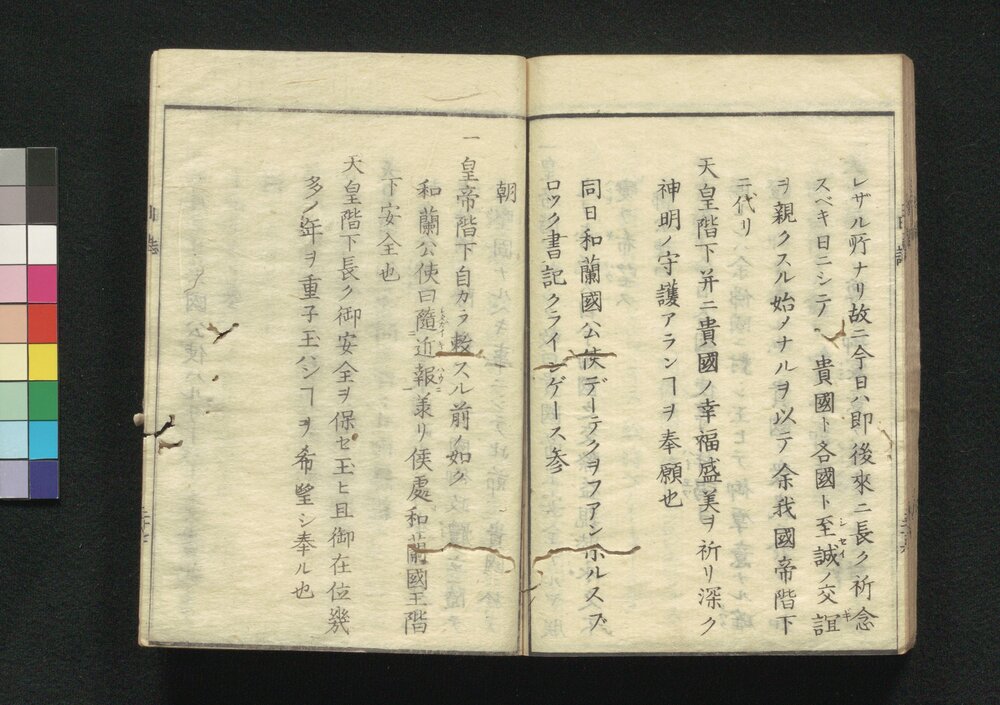 レザル所ナリ故ニ今日ハ即後來ニ長ク祈念
スベキ日ニシテ、貴國ト各國ト至誠ノ交誼
シセイ
ギ
ヲ親クスル始メナルヲ以テ余我國帝階下
ニ代リ
天皇階下并ニ貴國ノ幸福盛美ヲ祈リ深ク
神明ノ守護アランヿヲ奉願也
同日和蘭國公使デーデクヲフアンホルスブ
ロック書記クラインゲース參
朝
一皇帝階下自カラ敕スル前ノ如ク
和蘭公使曰隨近報義リ侯處和蘭國王階
下安全也
天皇階下長ク御安全ヲ保セ玉ヒ且御在位幾
多ノ年ヲ重子玉ハンヿヲ希望シ奉ル也